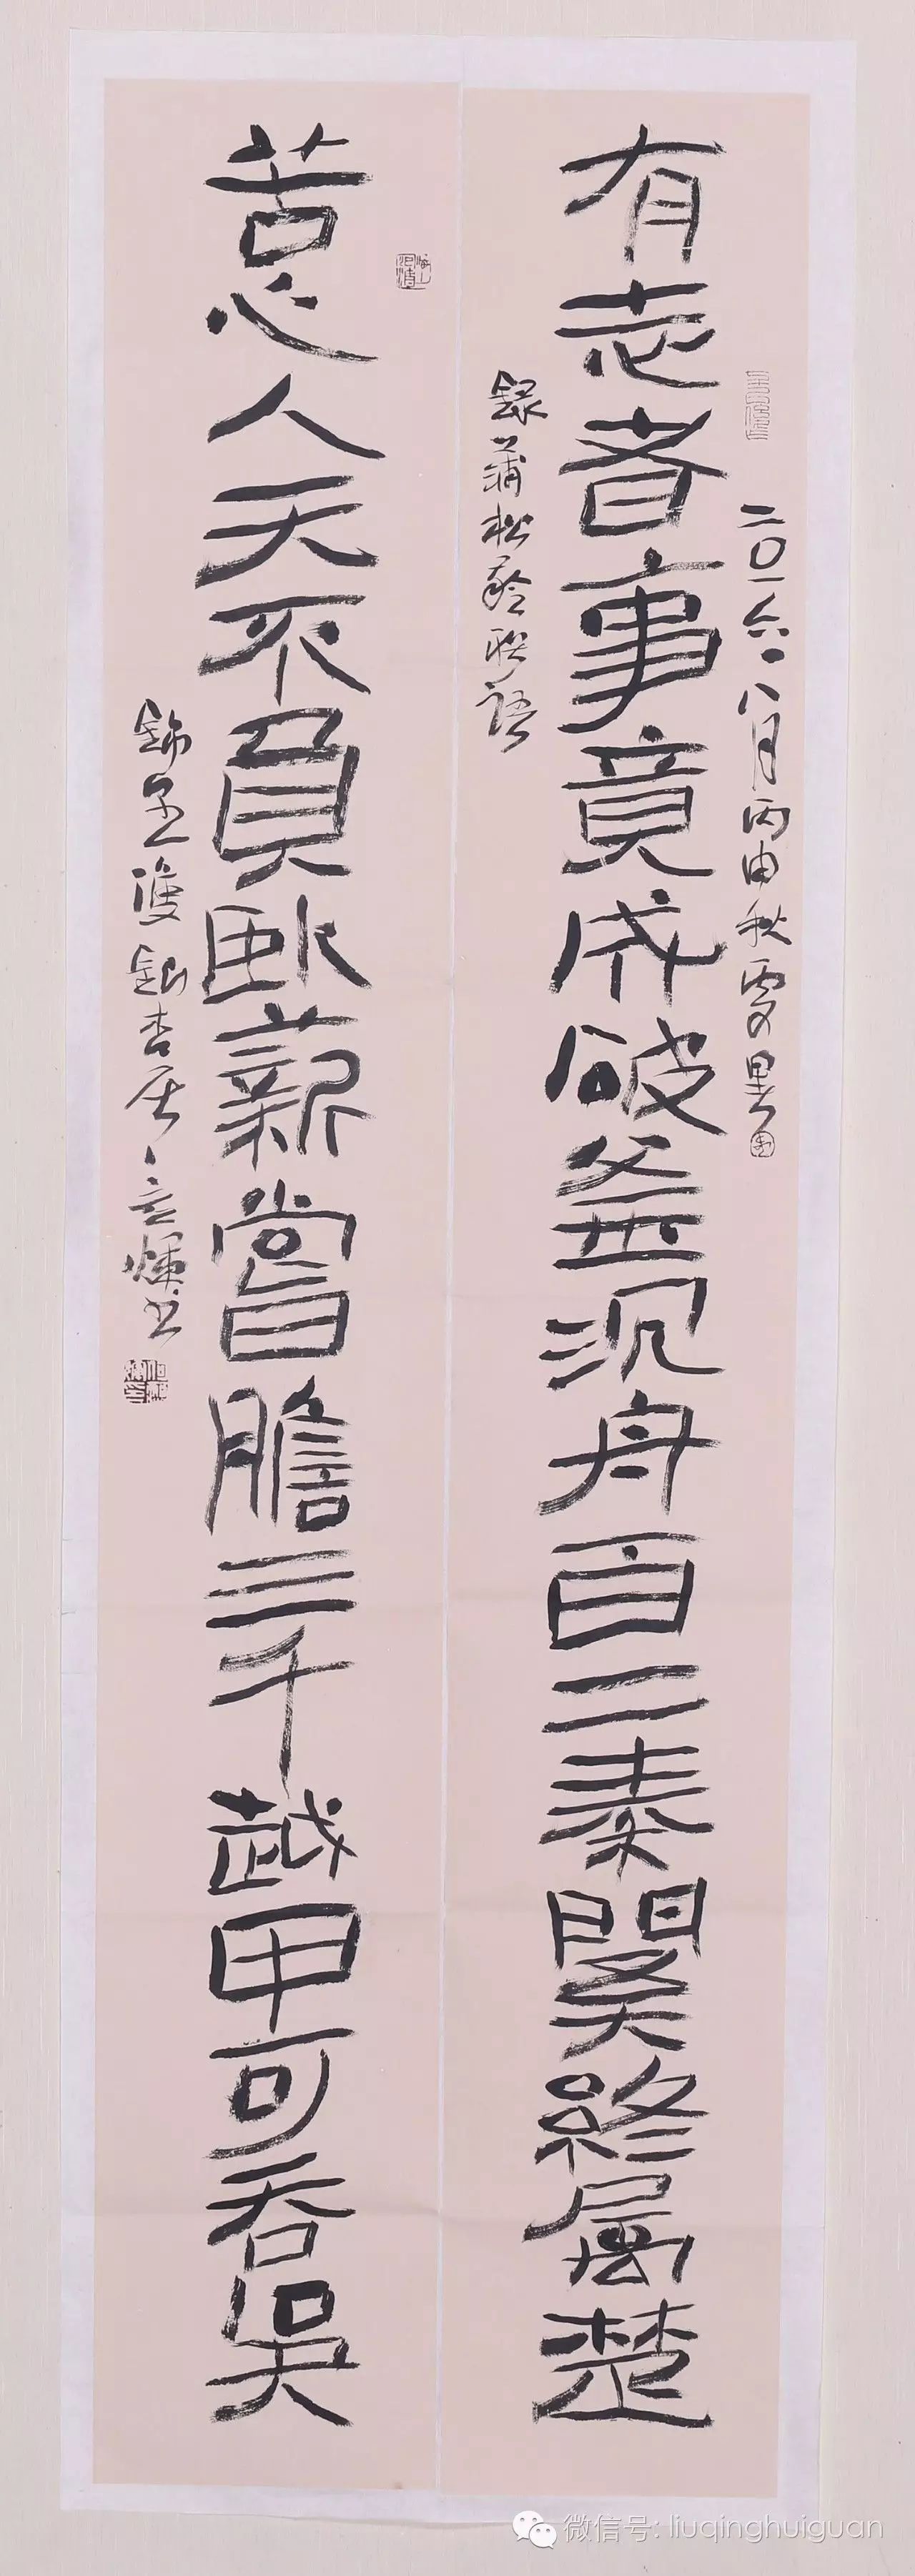 二〇一六八月丙申秋
有志者事竟成破釜沉舟百二秦関終属楚
錄蒲松齡联語
苦心人天不負臥薪嘗膽三千越甲可吞吳
銀杏居
微信号: liuqinghuiguan